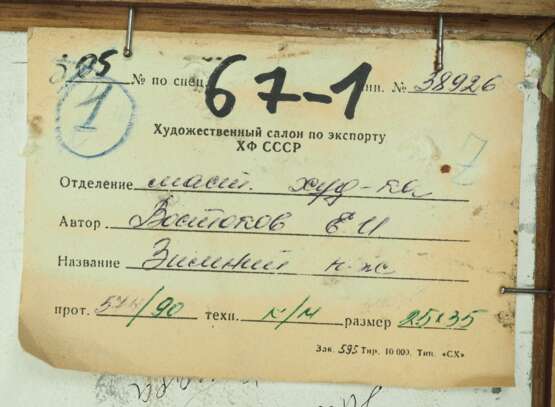 505 № по спец. 67-1 инн. № 38926
1
Художественный салон по экспорту
ХФ СССР
7
Отделение маст. худ-ка
Автор Востоков Е И
Название Зимний п-ж
прот. /90 техн. к/м размер 25х35
Зак. 595 Тир. 10 000. Тип. «СХ»